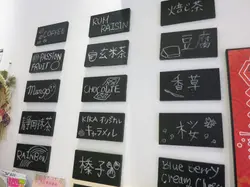 COFFEE
PASSION
FRUIT
Mango
静岡抹茶
RAINBOW
RUM
RAISIN
玄米茶
chocolate
キャラメル
榛子
焙じ茶
豆腐
香草
blueberry
cream